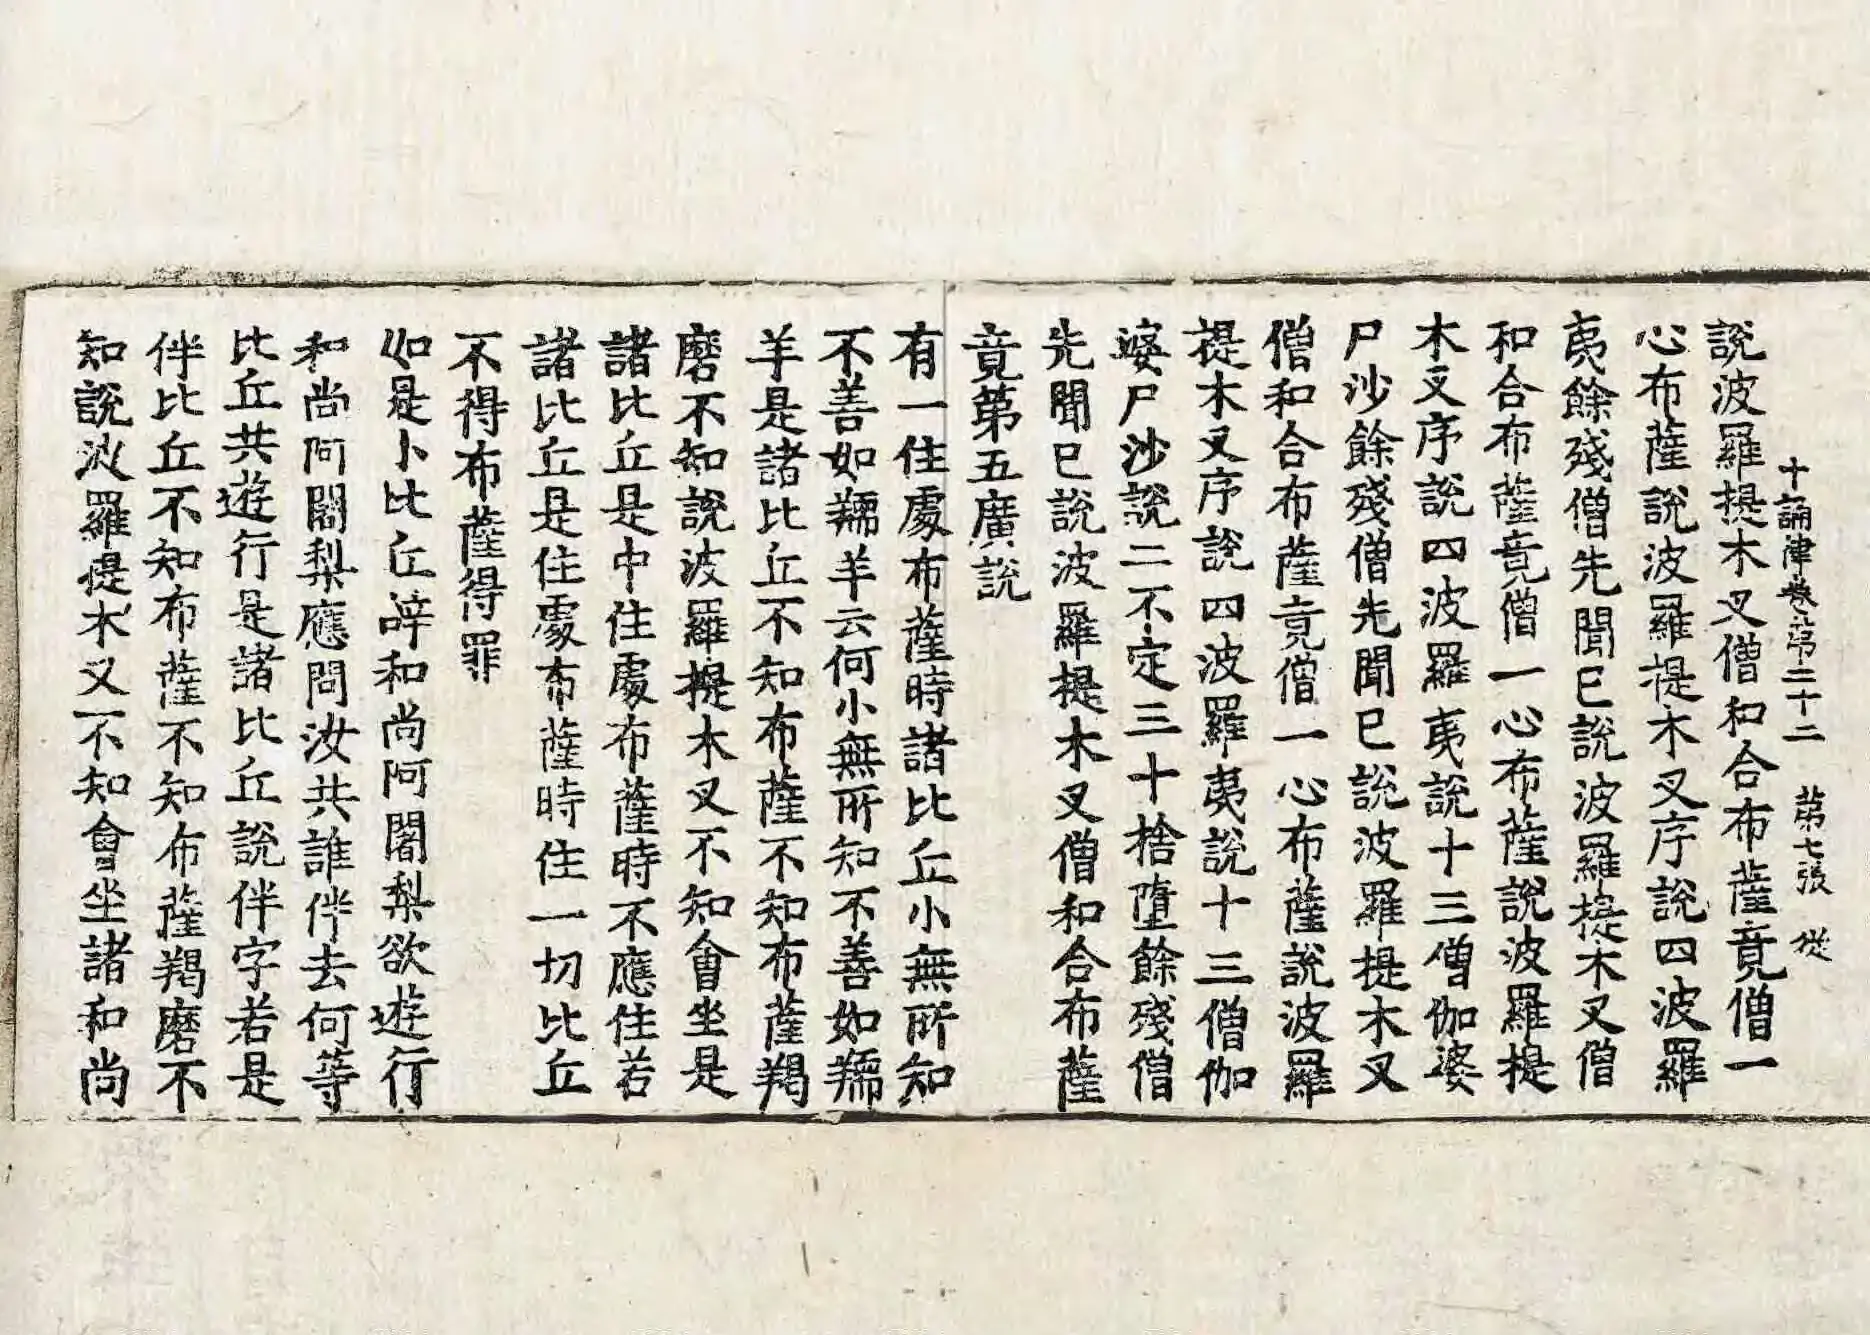 十誦律卷第二十二 第七張 從
說波羅提木叉僧和合布薩竟僧一
心布薩說波羅提木叉序說四波羅
夷餘殘僧先聞已說波羅提木叉僧
和合布薩竟僧一心布薩說波羅提
木叉序說四波羅夷說十三僧伽婆
尸沙餘殘僧先聞已說波羅提木叉
僧和合布薩竟僧一心布薩說波羅
提木叉序說四波羅夷說十三僧伽
婆尸沙說二不定三十捨墮餘殘僧
先聞已說波羅提木叉僧和合布薩
竟第五廣說
有一住處布薩時諸比丘小無所知
不善如羺羊云何小無所知不善如羺
羊是諸比丘不知布薩不知布薩羯
磨不知說波羅提木叉不知會坐是
諸比丘是中住處布薩時不應住若
諸比丘是住處布薩時住一切比丘
不得布薩得罪
如是小比丘辞和尚阿闍梨欲遊行
和尚阿闍梨應問汝共誰伴去何等
比丘共遊行是諸比丘說伴字若是
伴比丘不知布薩不知布薩羯磨不
知說波羅提木叉不知會坐諸和尚